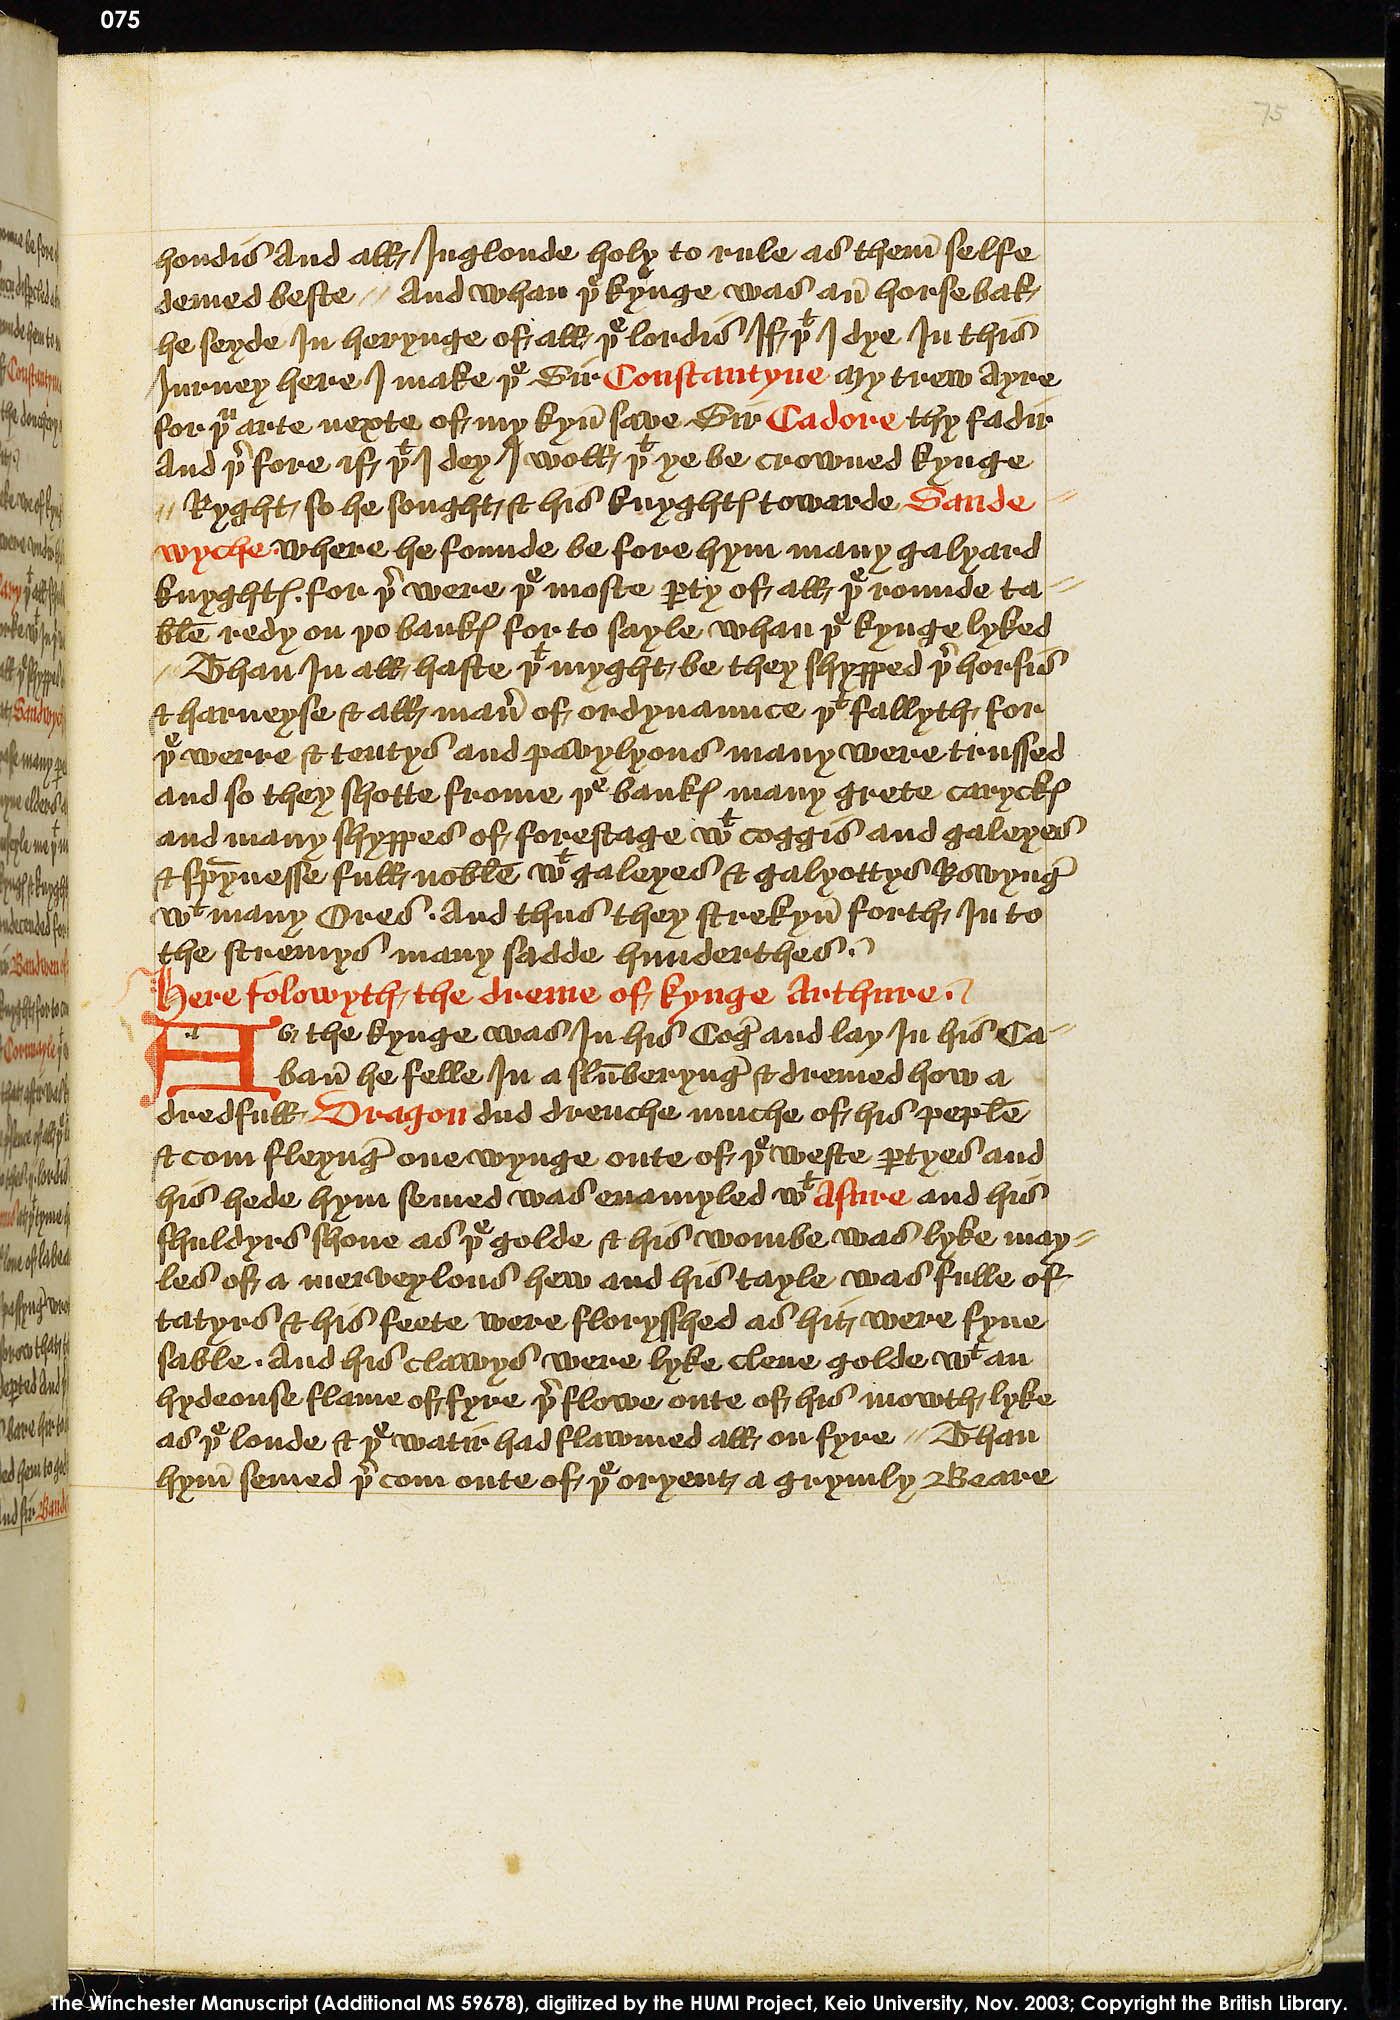 075
75
hondis And all Inglonde holy to rule as them̄ selfe
demed beste // And whan þᵉ kynge was an̄ horse bak
he seyde In herynge of all þᵉ lordis If þᵗ I dye In this
Jurney here I make þᵉ Sir Constantyne My trew Ayre
for þᵘ arte nexte of my kyn̄ save Sir Cadore thy fadir
And þ̄ fore if þᵗ I dey I woll þᵗ ye be crowned kynge
// Ryght so he sought & his knyghtꝭ towarde Sande //
wyche where he founde be fore hym many galyard
knyghtꝭ. for þ̄ were þᵉ moste ꝑty of all þᵉ rounde ta //
ble redy on þo bankꝭ for to sayle whan þᵉ kynge lyked
// Than In all haste þᵗ myght be they shypped þ̄ horsis
& harneyse & all man̄ of ordynaunce þᵗ fallyth for
þᵉ werre & tentys and pavylyons many were trussed
and so they shotte frome þᵉ bankꝭ many grete caryckꝭ
and many shyppes of forestage wᵗ coggis and galeyes
& spȳnesse full noble wᵗ galeyes & galyottys Rowynḡ
wᵗ many Ores. And thus they strekyn̄ forth In to
the stremys many sadde hunderthes.
Here folowyth the dreme of kynge Arthure.
As the kynge was In his Coḡ and lay In his Ca //
ban̄ he felle In a slūberynḡ & dremed how a
dredfull Dragon dud drenche muche of his peple
& com fleynḡ one wynge oute of þᵉ weste ꝑtyes and
his hede hym semed was enamyled wᵗ Asure and his
shuldyrs shone as þᵉ golde & his wombe was lyke may //
les of a merveylous hew and his tayle was fulle of
tatyrs & his feete were florysshed as hit were fyne
sable. And his clawys were lyke clene golde wᵗ an
hydeouse flame of fyre þ̄ flowe oute of his mowth lyke
as þᵉ londe & þᵉ watir had flawmed all on fyre // Than
hym̄ semed þ̄ com oute of þᵉ oryent a grymly Beare
The Winchester Manuscript (Additional MS 59678), digitized by the HUMI Project, Keio University, Nov. 2003; Copyright the British Library.